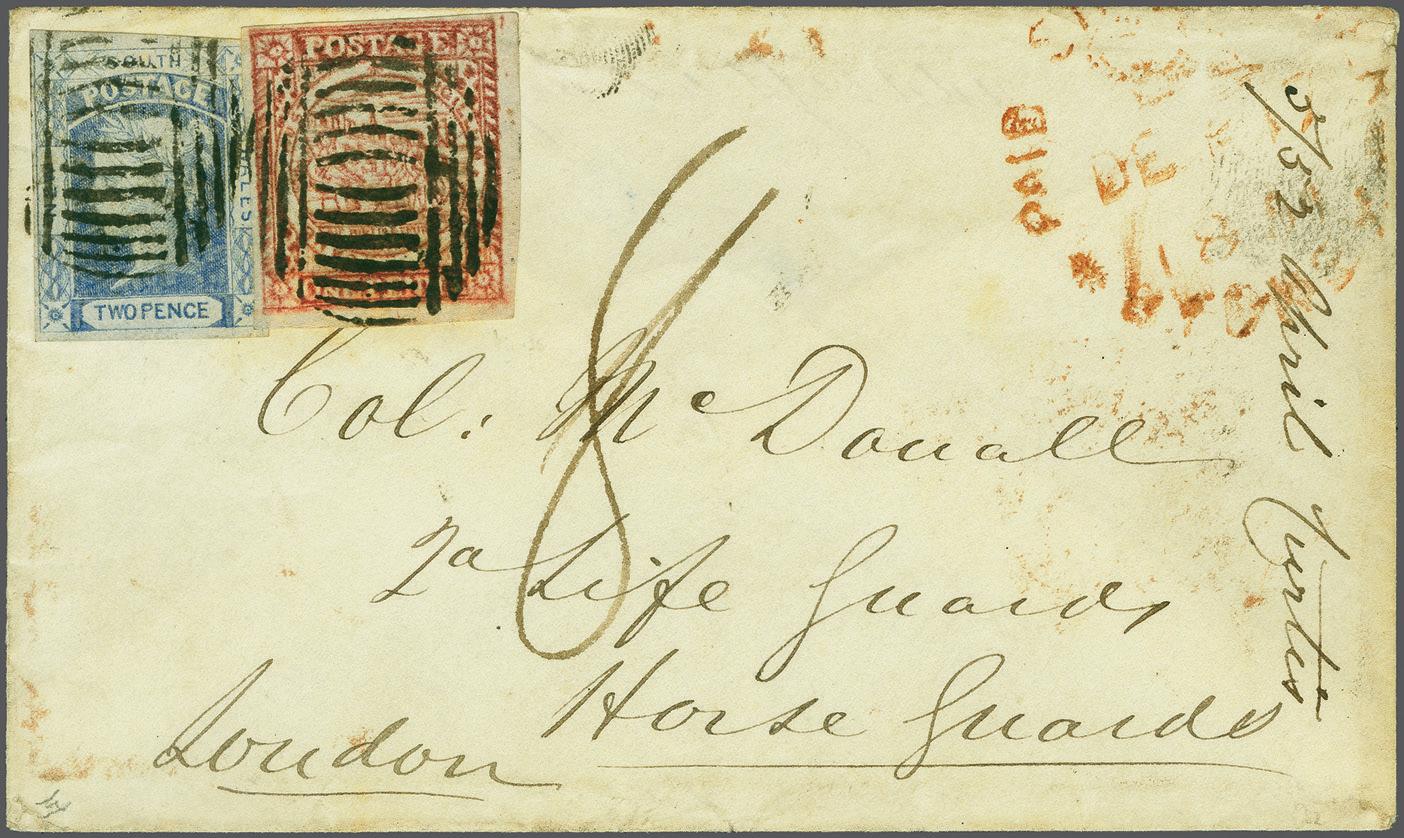 SOUTH
POSTAGE
WALES
TWO PENCE
POSTAGE
PAID
DE
18
8
Col: Mc Douall
2d Life Guards
Horse Guards
London
5/52 April Curtis